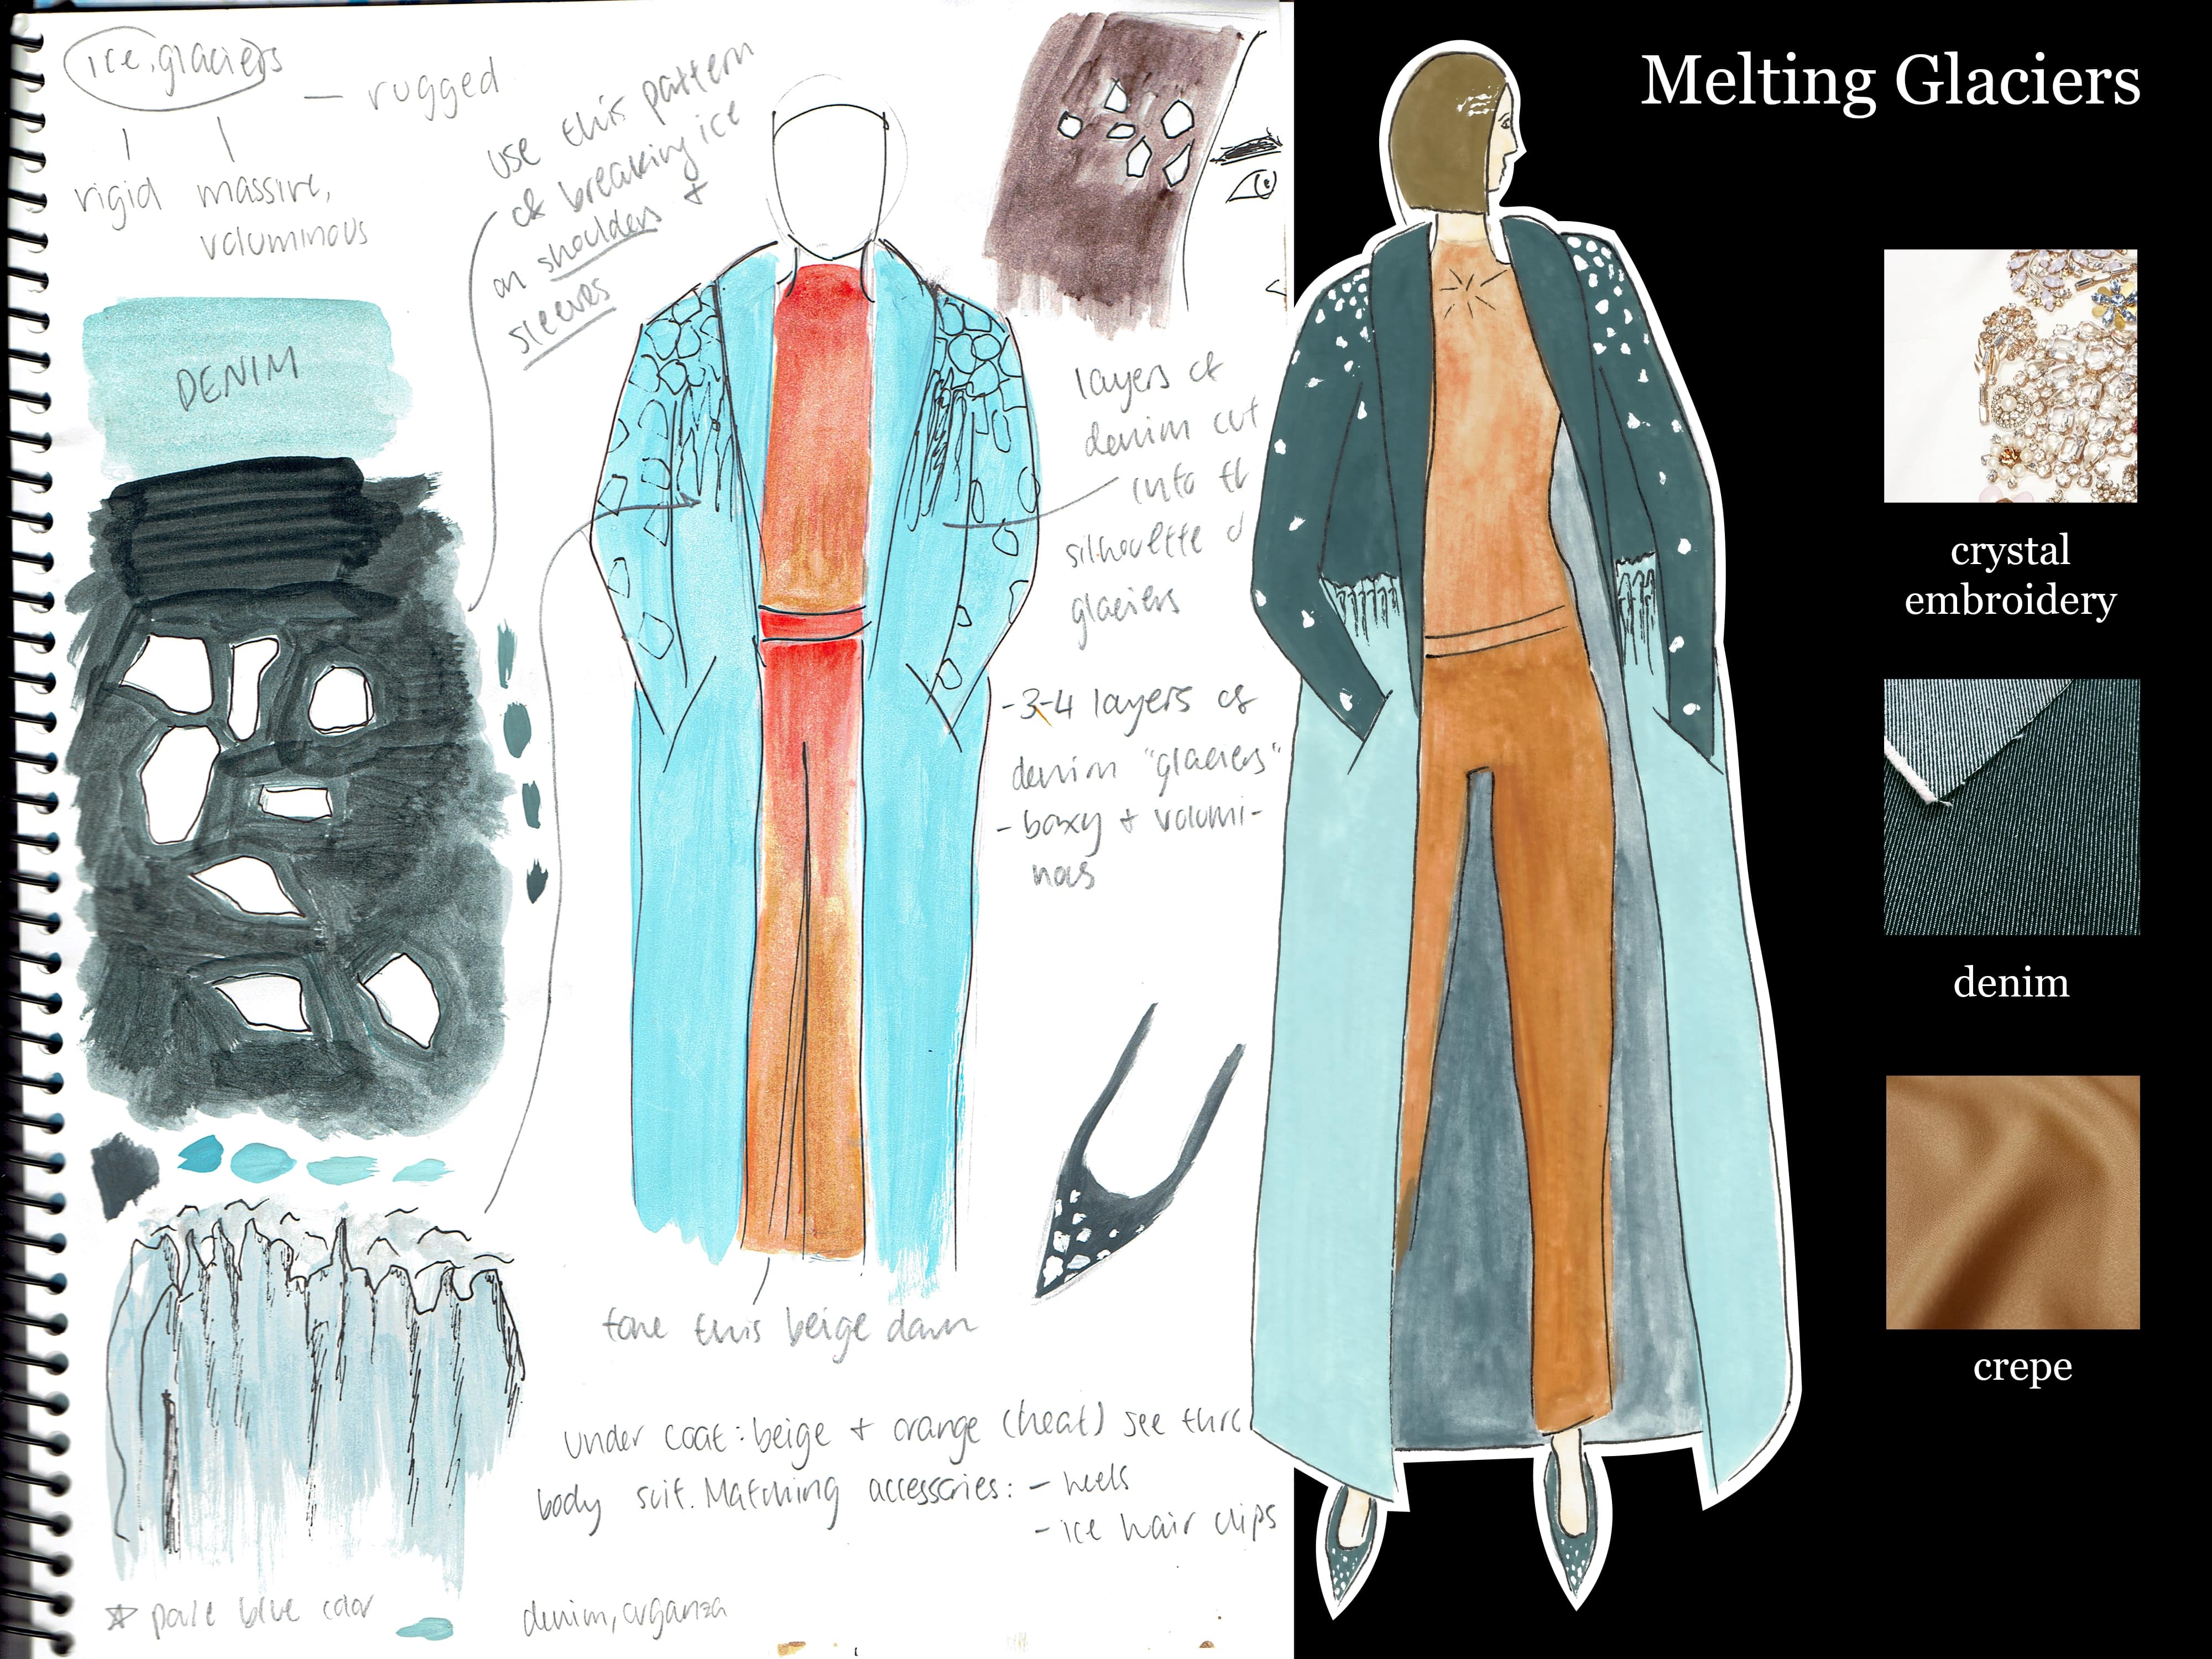 ice, glaciers
— rugged
rigid massive,
voluminous
use this pattern
of breaking ice
on shoulders +
sleeves
DENIM
layers of
denim cut
into th
silhouette o
glaciers
-3-4 layers of
denim "glaciers"
- boxy + volumi-
nous
tone this beige down
under coat: beige + orange (heat) see thro
body suit. Matching accessories: - heels
- ice hair clips
pale blue color
denim, organza
Melting Glaciers
crystal
embroidery
denim
crepe